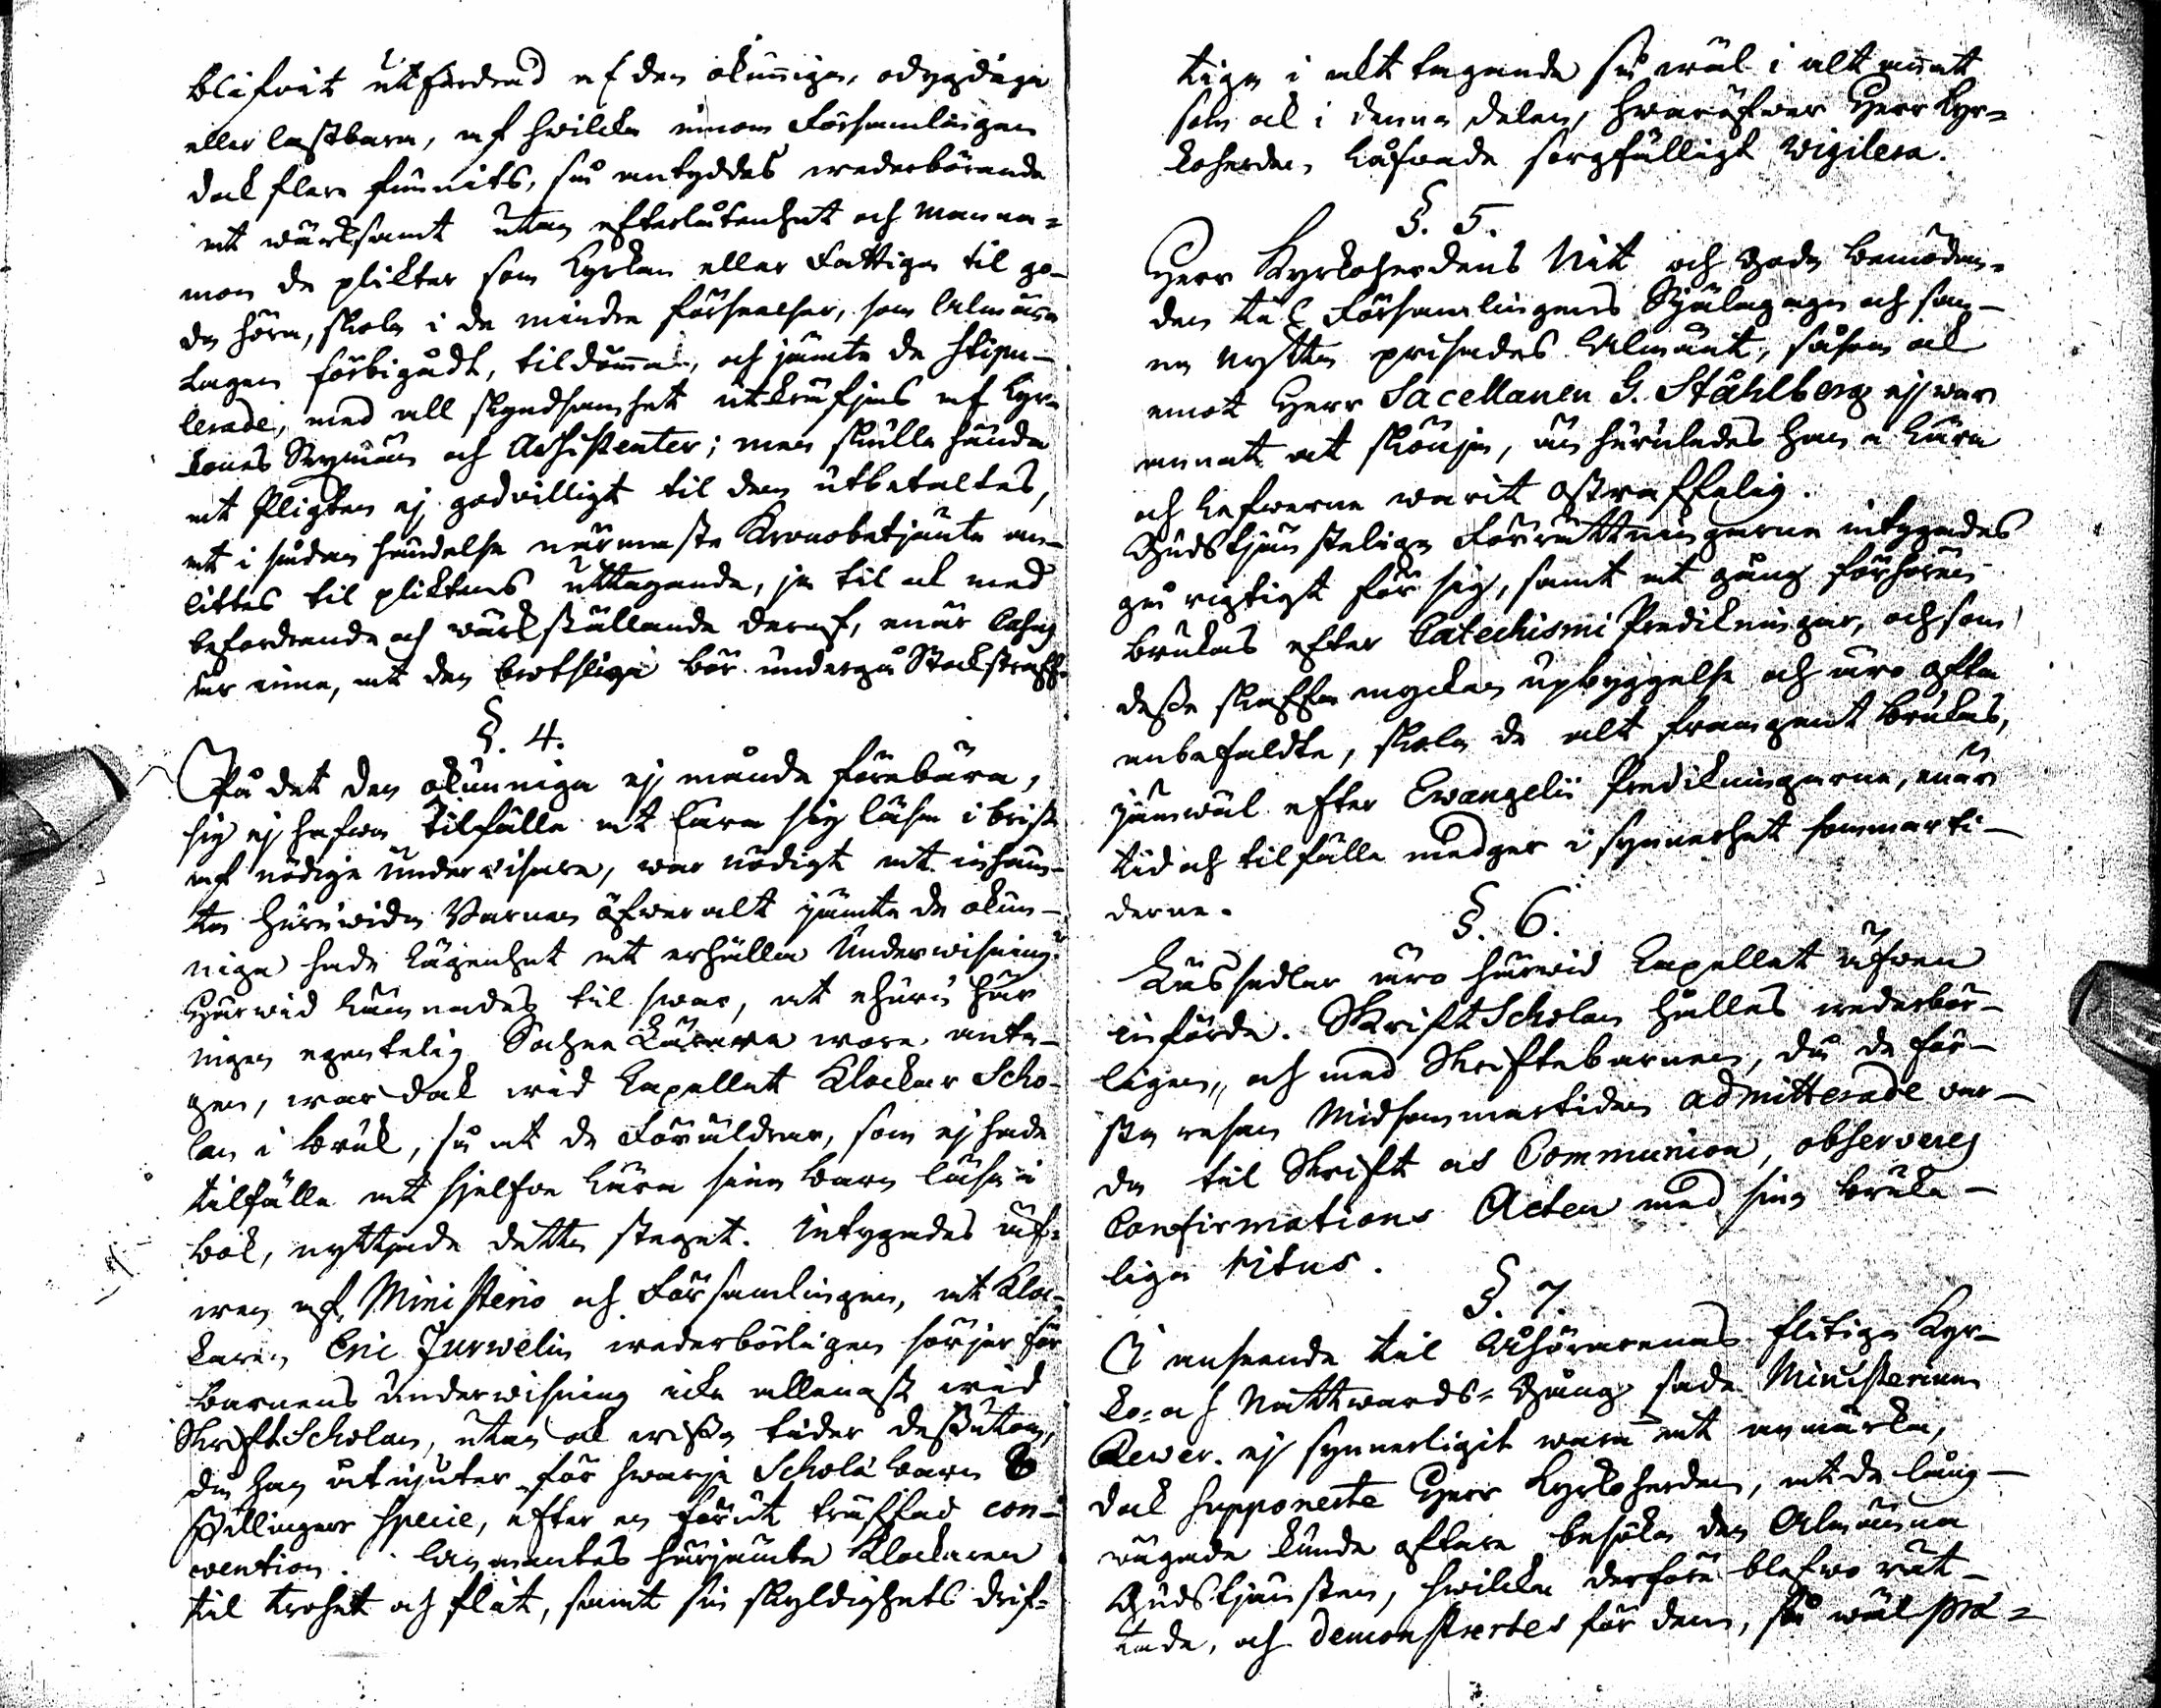 blifvit utfordrad af den okunniga, odygdiga
eller lastbara, af hwilka innom Församlingen
dock flere funnits, så antyddes wederbörande
at wärksamt utan efterlåtenhet och manna-
mon de plikter som Kyrkan eller Fattiga til go-
da höra, skola i de mindre förseelser, som Almäna
Lagen förbigådt, tildömmas, och jämte de stipu-
lerade, med all skyndsamhet utkräfjas af Kyr-
kones Sexmän och Assistenter; men skulle hända
at Pligten ej godvilligt til dem utbetaltes,
at i sådan händelse närmaste Kronobetjänte an-
littes til pliktens uttagande, ja til ock med
befordrande och wärkställande deraf, enär Casus
är inne, at den brotslige bör undergå Stockstraff.
§. 4.
På det den okunniga ej månde förebära,
sig ej hafwa tilfälle at lära sig läsa i brist
af nödige underwisare, war nödigt at inhäm-
ta huruwida Barnen öfweralt jämte de okun-
niga hade lägenhet at erhålla Underwisning.
Härwid lämnades til swar, at ehuru här
ingen egentelig Sochne Lärare wore anta-
gen, war dock wid Capellet Klockar Scho-
lan i bruk, så at de Föräldrar, som ej hade
tilfälle at sjelfve lära sina barn läsa i
bok, nyttjade detta steget. Intygades äf-
wen af Ministerio och Församlingen, at Kloc-
karen Eric Jurvelin wederbörligen sörjer för
Barnens underwisning icke allenast wid
Skrift Scholan, utan ock wissa tider dessutom,
då han åtnjuter för hwarje Schole barn 8
skillingar Specie, efter en förut träffad con-
vention. Anmantes härjämte Klockaren
til trohet och flit, samt sin skyldighets drif-
tiga i akt tagande så wäl i alt annat
som ock i denna delen, hwaröfwer Herr Kyr-
koherden låfvade sorgfälligt vigilera.
§. 5.
Herr Kyrkoherdens Nit och goda bemödan-
den til Församlingens Själagagn och san-
na nytta prisades Almänt, såsom ock
emot Herr Sacellanen G. Ståhlberg ej war
annat at skönja, än huruledes han i Lära
och Lefwerne warit ostraffelig.
Gudstjänstelige Förrättningarne intygades
gå rigtigt för sig, samt at gång förhören
brukas efter Catechismi Predikningar, och som
desse skaffa mycken upbyggelse och äro ofta
anbefaldte, skola de alt framgent brukas,
jämwäl efter Ewangelii Predikningarne, enär
tid och tilfälle medger i synnerhet sommarti-
derne.
§. 6.
Läsesedlar äro härwid Capellet äfwen
införde. Skrift Scholan hålles wederbör-
ligen, och med Skriftebarnen, då de för-
sta resan Midsommartiden admitterade var-
da til Skrift as Communion, observeres
Confirmations Acten med sina bruke-
liga ritus.
§. 7.
I anseende til Åhörarenas flitiga Kyr-
ko- och Nattwards-Gång hade Ministerium
Rever. ej synnerligit wara at anmärka,
dock supponerte Herr Kyrkoherden, at de lång-
vägade kunde oftare besöka den Almänna
Gudstjänsten, hwilka derföre blefwo råt-
tade, och demonstrertes för dem, så wäl præ-